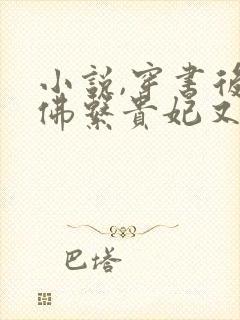 小說,穿書後
佛繫貴妃又
巴塔